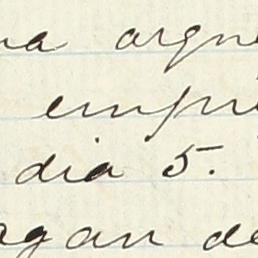 na arque
empre
dia 5.
rgan de